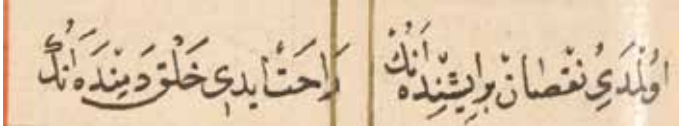 اُولْمَدِى نُقْصَانْ بِرْ اِيشِنْدَه اَنُكْ رَاحَتْ اِيدِى خَلْقْ دَمِنْدَه اَنُكْ